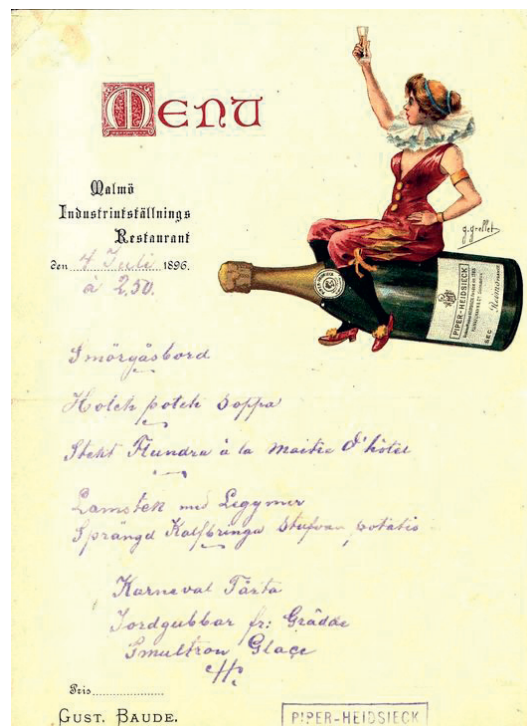 MENU
Malmö
Industriutställnings
Restaurant
den 4 Juli 1896.
à 2,50.
g. grellet
PIPER-HEIDSIECK
SEC
Reims
Smörgåsbord
Hotch potch Soppa
Stekt Flundra à la Maitre d'hôtel
Lamstek med Legymer
Sprängd Kalfbringa Stufvan potatis
Karneval Tårta
Jordgubbar fr: Grädde
Smultron Glaçe
Pris
GUST. BAUDE.
PIPER-HEIDSIECK